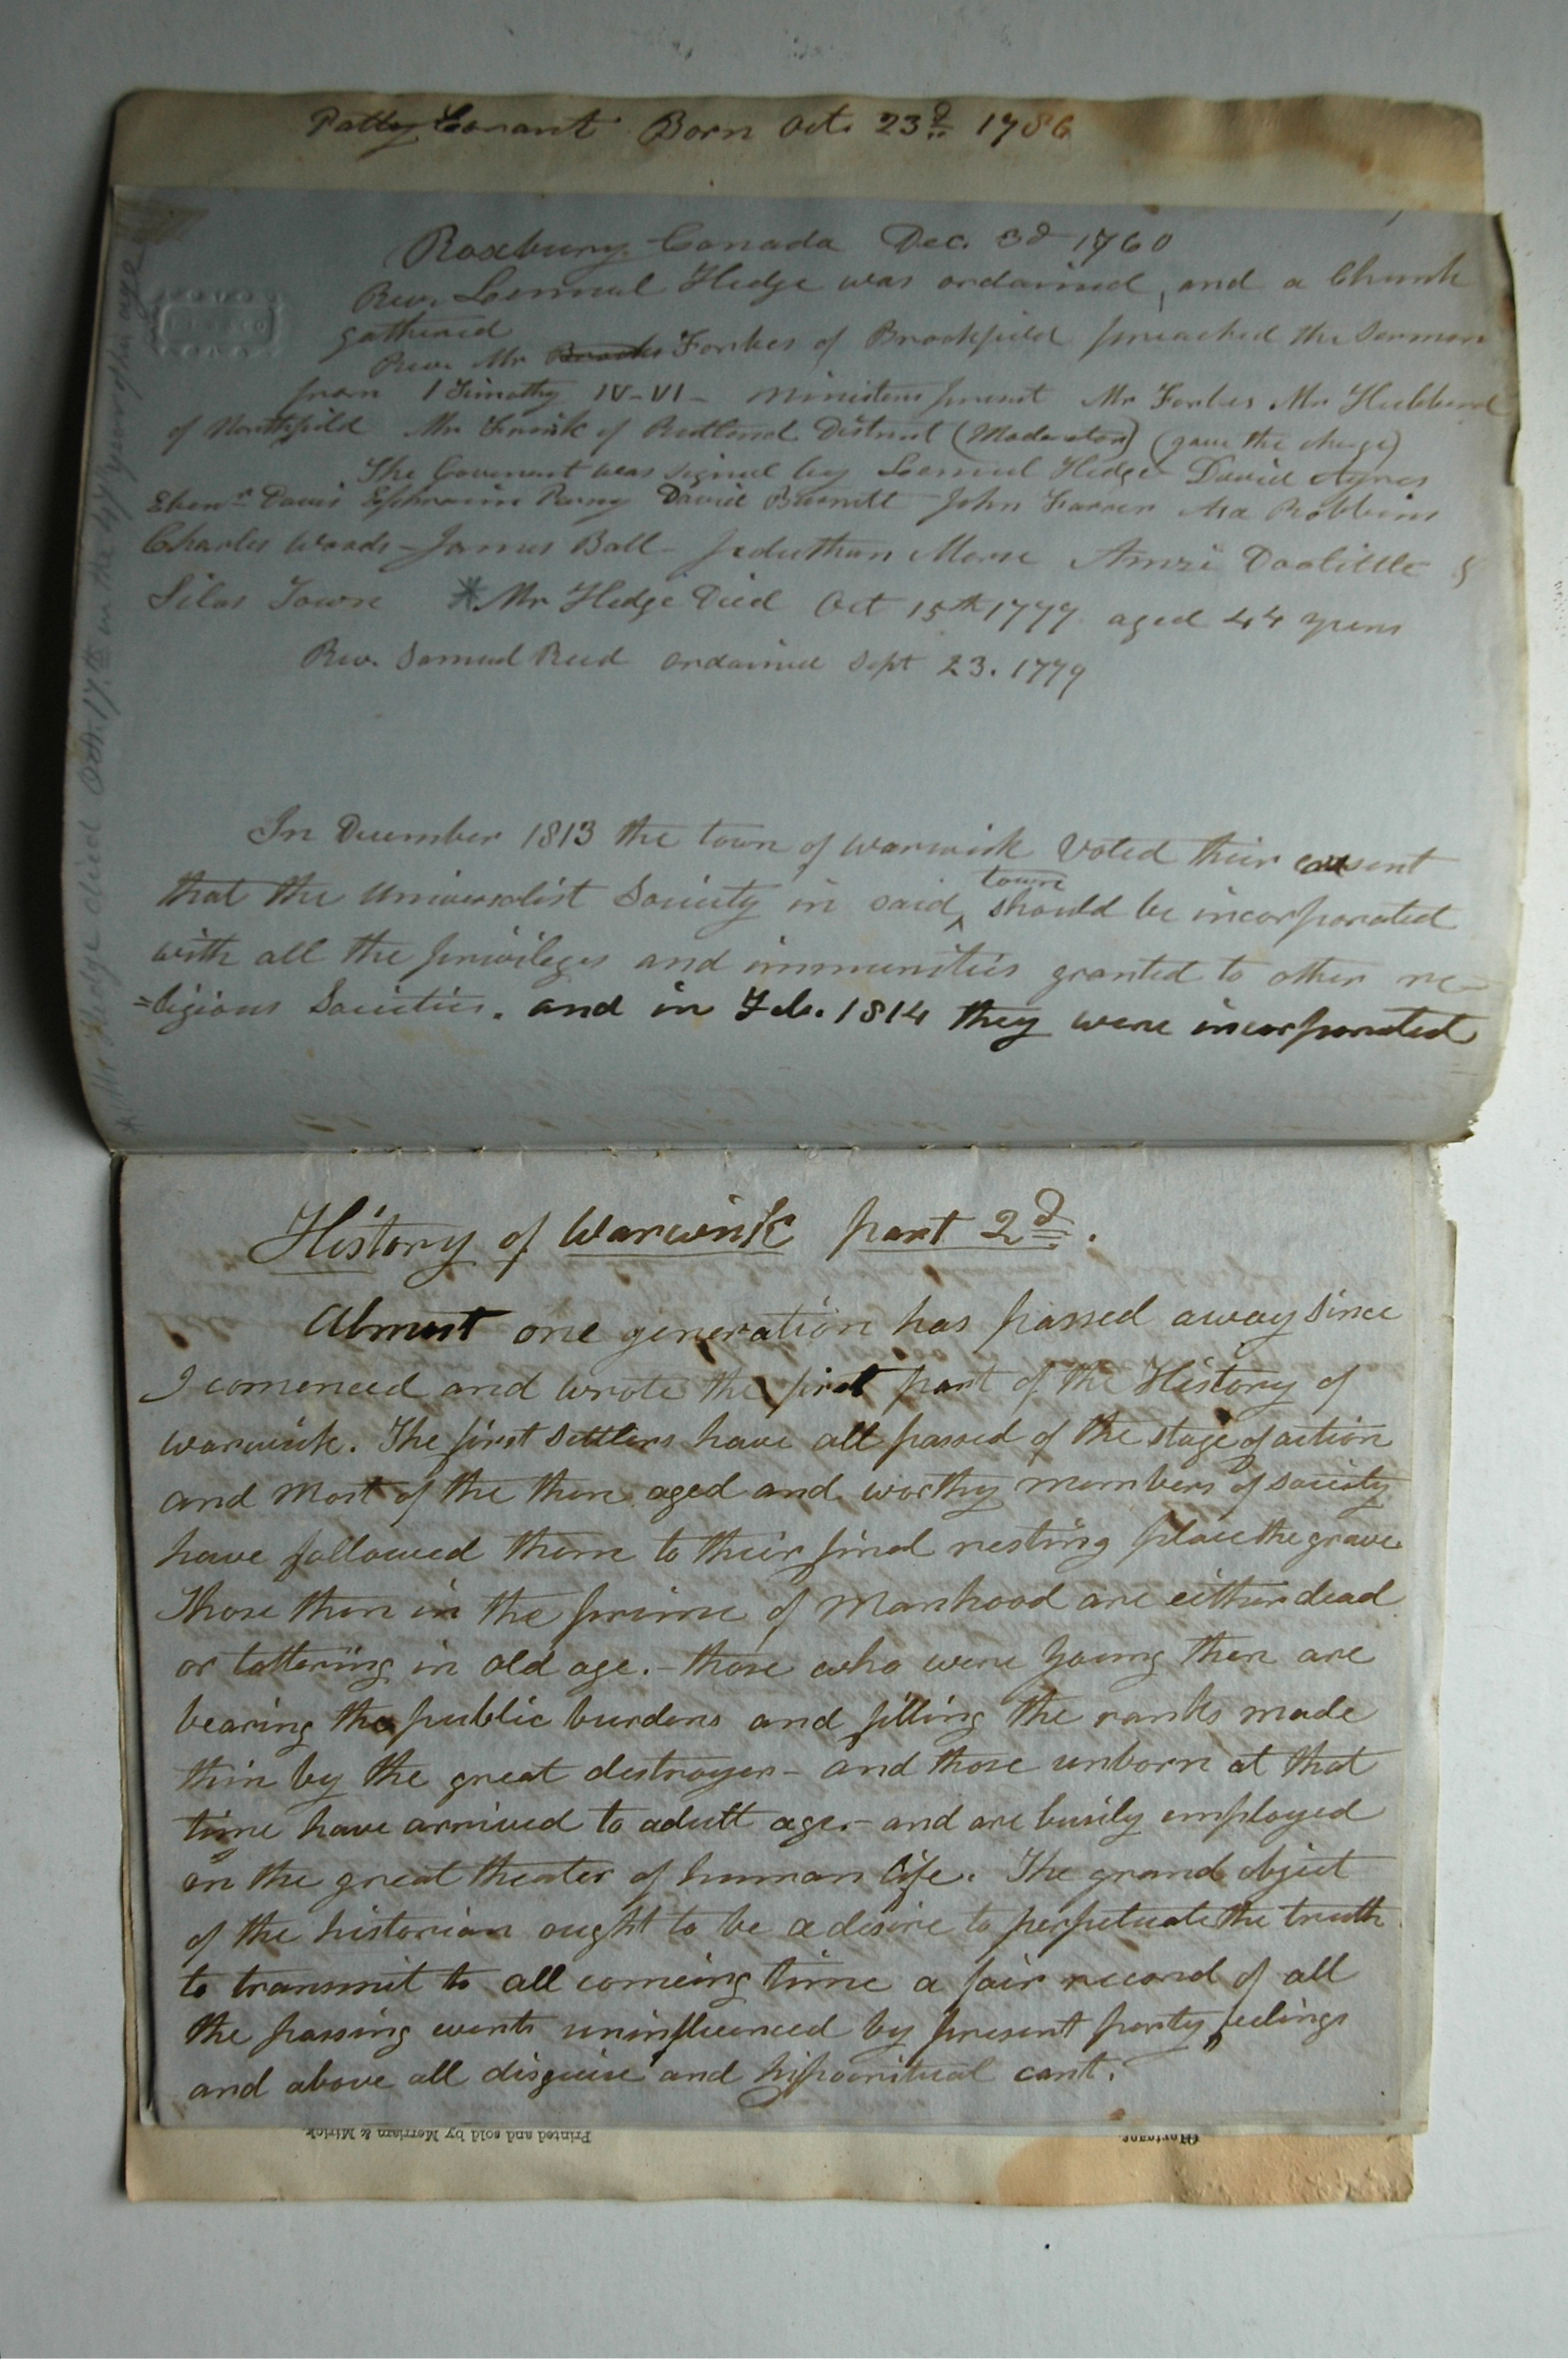 Patty Conant Born Oct. 23d 1786
Roxbury Canada Dec. 3d 1760
Rev. Lemuel Hedge was ordained, and a Church
gathered
Rev. Mr Brooks Forbes of Brookfield preached the Sermon
from 1 Timothy IV-VI - Ministers present Mr Forbes Mr Hubbard
of Northfield Mr Frink of Rutland District (Moderator) (gave the charge)
The Covenant was signed by Lemuel Hedge David Ayres
Ebenr Davis Ephraim Perry David Burnett John Farrer Asa Robbins
Charles Woods - James Ball - Jeduthun Morse Amzi Doolittle &
Silas Towne * Mr Hedge Died Oct 15th 1777 aged 44 years
Rev. Samuel Reed ordained Sept 23. 1779
In December 1813 the town of Warwick Voted their consent
that the Universalist Society in said ^ town should be incorporated
with all the privileges and immunities granted to other re-
=ligious Societies. and in Feb. 1814 they were incorporated
* Mr Hedge died Oct. 17th in the 44 year of his age
History of Warwick part 2d.
Almost one generation has passed away since
I comenced and wrote the first part of the History of
Warwick. The first Settlers have all passed of the stage of action
and Most of the then aged and worthy members of society
have followed them to their final resting place the grave.
Those then in the prime of Manhood are either dead
or tottering in old age. - those who were young then are
bearing the public burdens and filling the ranks made
thin by the great destroyer - and those unborn at that
time have arrived to adult age. - and are busily employed
on the great theater of human life. The grand object
of the historian ought to be a desire to perpetuate the truth
to transmit to all comeing time a fair record of all
the passing events uninfluenced by present party feelings
and above all disguise and hipocritical cant.
Printed and sold by Merriam & Mirick
Mortgage.